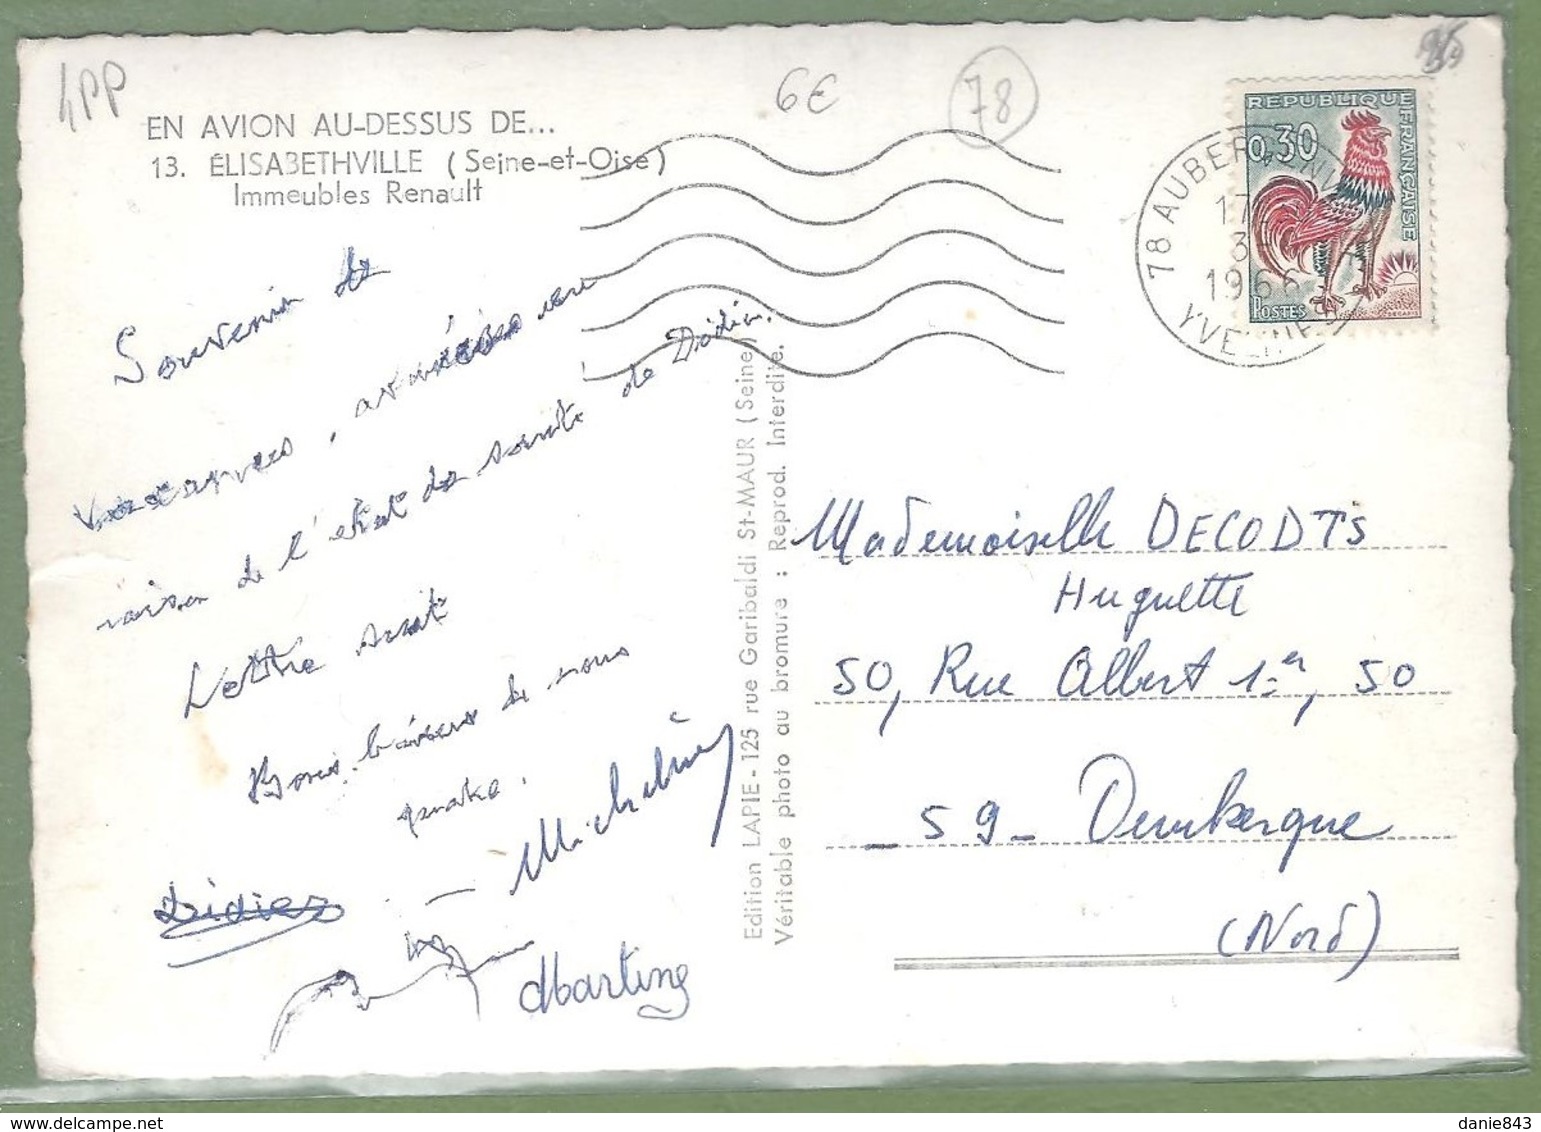 4PP
6€
78
EN AVION AU-DESSUS DE...
13. ÉLISABETHVILLE (Seine-et-Oise)
Immeubles Renault
REPUBLIQUE FRANÇAISE
0,30
POSTES
78 AUBER
17
3
1966
YVELINES
Souvenir de
vacances,
raison de l'état de santé de Didier.
Lettre suit
Bons baisers de nous
quatre.
Micheline
Didier
Martine
Edition LAPIE - 125 rue Garibaldi St-MAUR (Seine)
Véritable photo au bromure : Reprod. Interdite.
Mademoiselle DECODTS
Huguette
50, Rue Albert 1er, 50
_ 59 _ Dunkerque
(Nord)
danie843